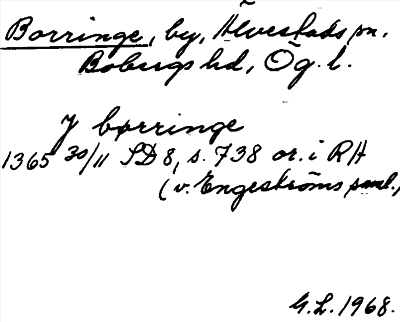 Borringe, by, Älvestads sn.
Bobergs hd, Ög. l.
J børringe
1365 30/11 SD 8, s. 738 or. i RH
(v. Engeströms saml.)
G.L. 1968.